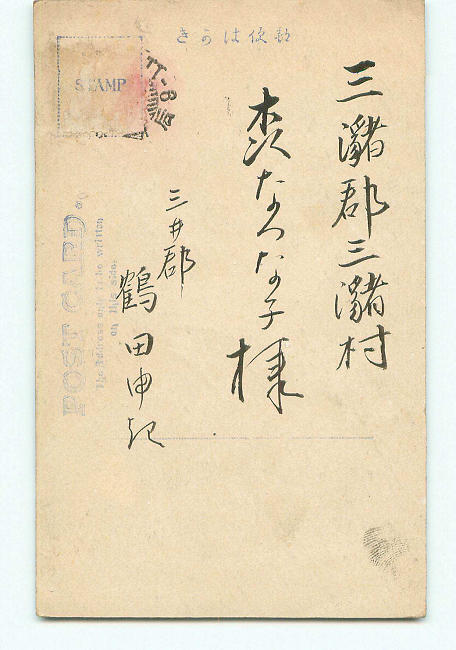 郵便はかき
STAMP
三瀦郡三瀦村
森なつな子様
三井郡
鶴田申記
POST CARD
The Address only to be written
on this side.